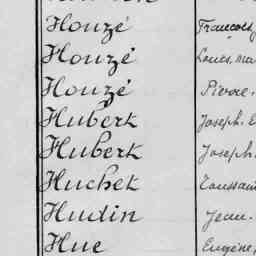 Houzé François,
Houzé Louis, Ma
Houzé Pierre.
Hubert Joseph. E
Hubert Joseph.
Huchet Toussain
Hudin Jean.
Hue Eugène,